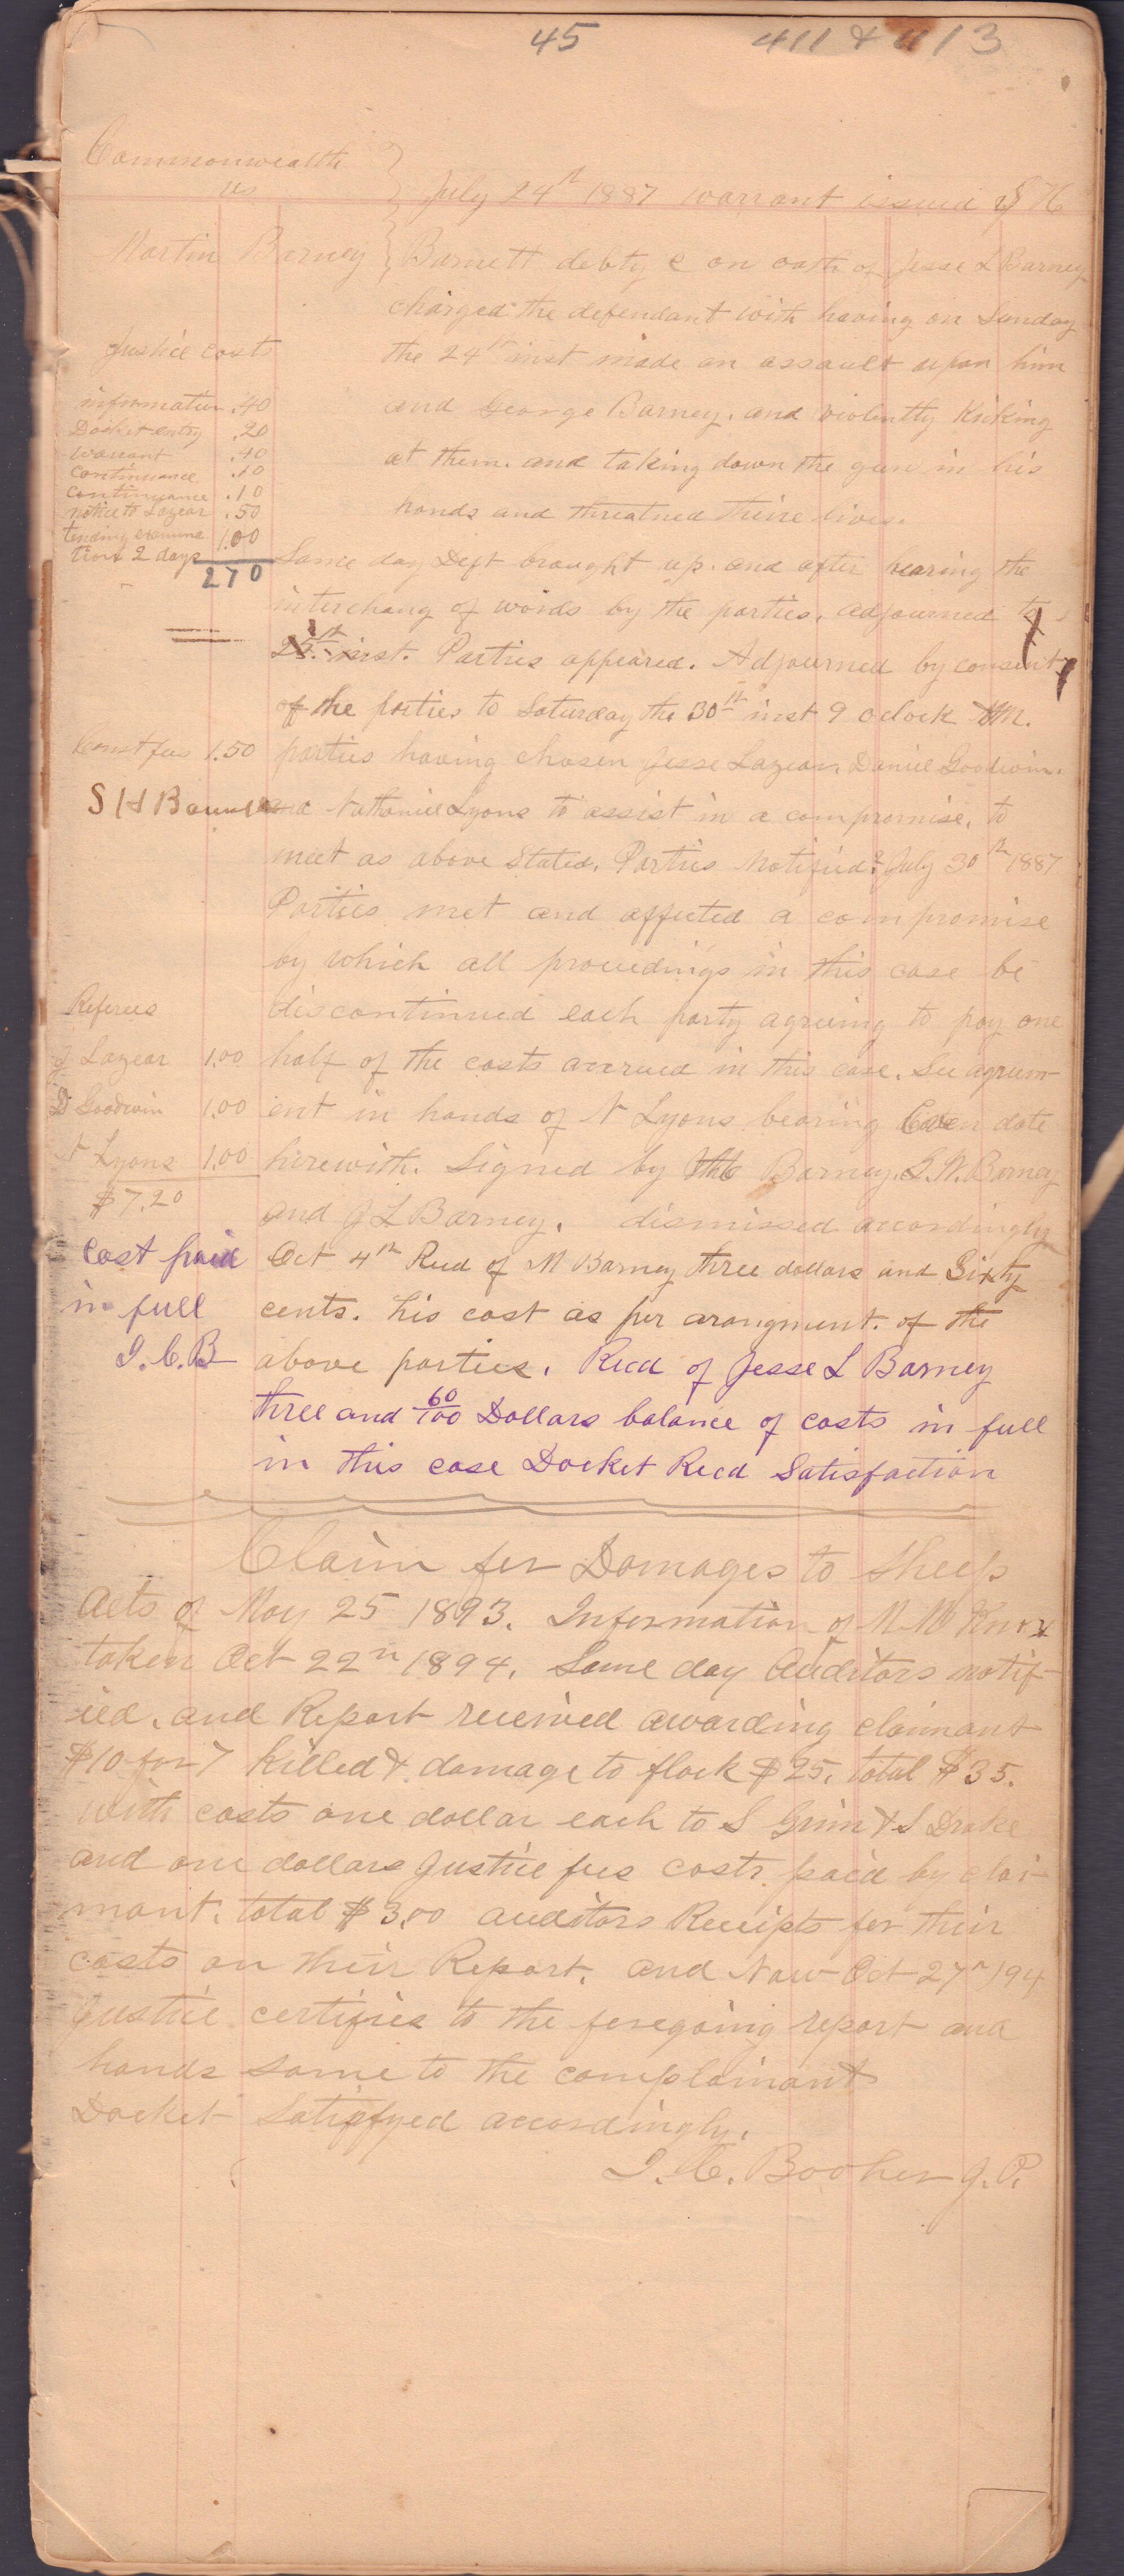 45 411 & 413
Commonwealth
vs
July 24th 1887 warrant issued S H
Martin Barney
Barnett debty c on oath of Jesse L Barney
charged the defendant with having on Sunday
Justice costs
the 24th inst made an assault upon him
information .40
and George Barney. and violently Kicking
Docket entry .20
warrant .40
at them. and taking down the gun in his
continuance .10
continuance .10
notice to Lazear .50
hands and threatned theire lives.
tending examina
tion 2 days 1.00
270
Same day Deft brought up. and after hearing the
interchang of words by the parties. adjourned to
inst. Parties appeared. Adjourned by consent
of the parties to Saturday the 30th inst 9 oclock
Const fees 1.50
parties having chosen Jesse Lazear. Daniel Goodwin.
S H Barnett
and Nathaniel Lyons to assist in a compromise. to
meet as above Stated. Parties notified. July 30th 1887
Parties met and affected a compromise
by which all proceedings in this case be
Referees
discontinued each party agreeing to pay one
J Lazear 1.00
half of the costs accrued in this case. See agreem-
D Goodwin 1.00
ent in hands of N Lyons bearing Even date
N Lyons 1.00
herewith. Signed by Barney. Barney
$7.20
and J L Barney. dismissed accordingly
Cost paid
Oct 4th Recd of M Barney three dollars and Sixty
in full
cents. his cost as per arangment. of the
I. C. B
above parties. Recd of Jesse L Barney
three and 60/100 Dollars balance of costs in full
in this case Docket Recd Satisfaction
Claim for Damages to Sheep
Acts of May 25 1893. Information of Knox
taken Oct 22n 1894. Same day Auditors notif-
ied. and Report received awarding claimant
$10 for 7 Killed & damage to flock $25. total $35.
with costs one dollar each to S Grim & S Drake
and one dollars Justice fees costs paid by clai-
mant. total $3.00 auditors Receipts for their
costs on their Report. and Now Oct 27n /94
Justice certifies to the foregoing report and
hands same to the complainant
Docket Satisfyed accordingly.
I. C. Booher J. P.